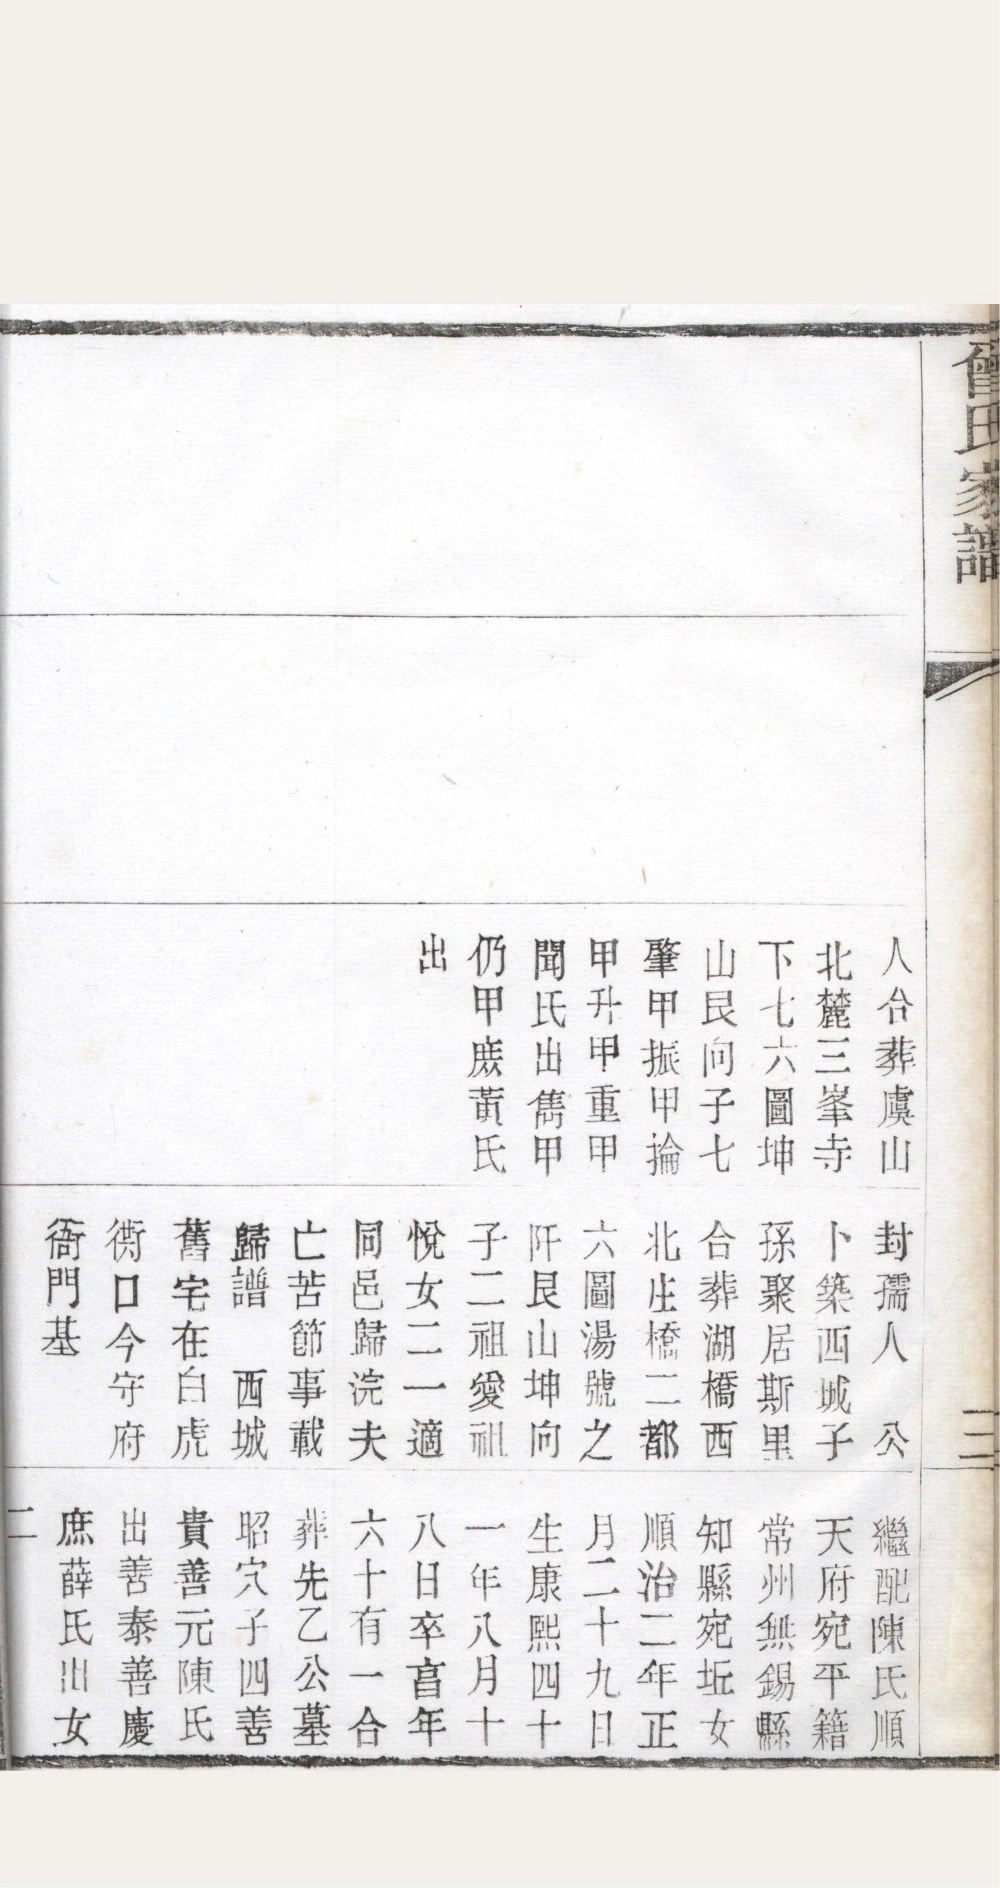 曾氏家譜
三
人合葬虞山
北麓三峯寺
下七六圖坤
山艮向子七
肇甲振甲掄
甲升甲重甲
聞氏出儁甲
仍甲庶黃氏
出
封孺人　公
卜築西城子
孫聚居斯里
合葬湖橋西
北庄橋二都
六圖湯號之
阡艮山坤向
子二祖愛祖
悅女二一適
同邑歸浣夫
亡苦節事載
歸譜　西城
舊宅在白虎
衖口今守府
衙門基
繼配陳氏順
天府宛平籍
常州無錫縣
知縣宛坵女
順治二年正
月二十九日
生康熙四十
一年八月十
八日卒亯年
六十有一合
葬先乙公墓
昭穴子四善
貴善元陳氏
出善泰善慶
庶薛氏出女
二